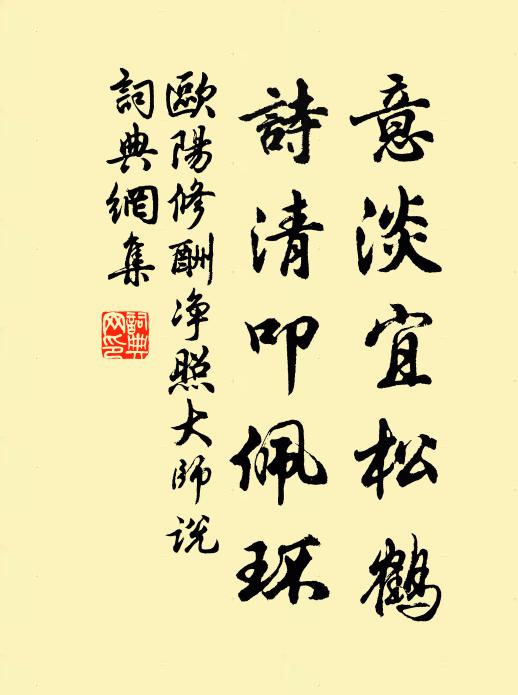 意淡宜松鶴
詩清叩佩環
歐陽修酬净照大師說
詞典網集
詞典網印